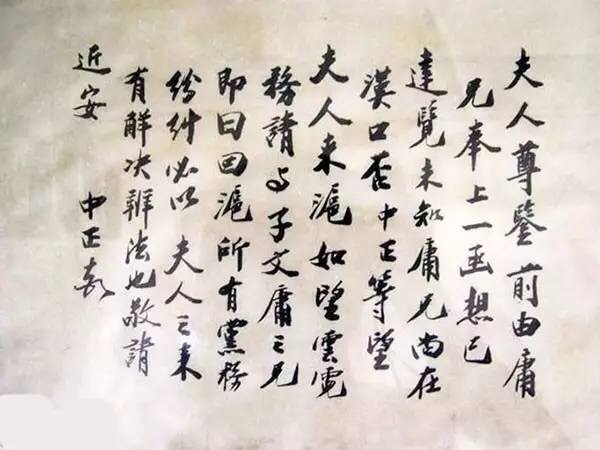 夫人尊鑒前由庸
兄奉上一函想已
達覽未知庸兄尚在
漢口否中正等望
夫人来滬如望雲霓
務請与子文庸之兄
即日回滬所有黨務
紛糾必以夫人之来
有解决辦法也敬請
近安 中正敬